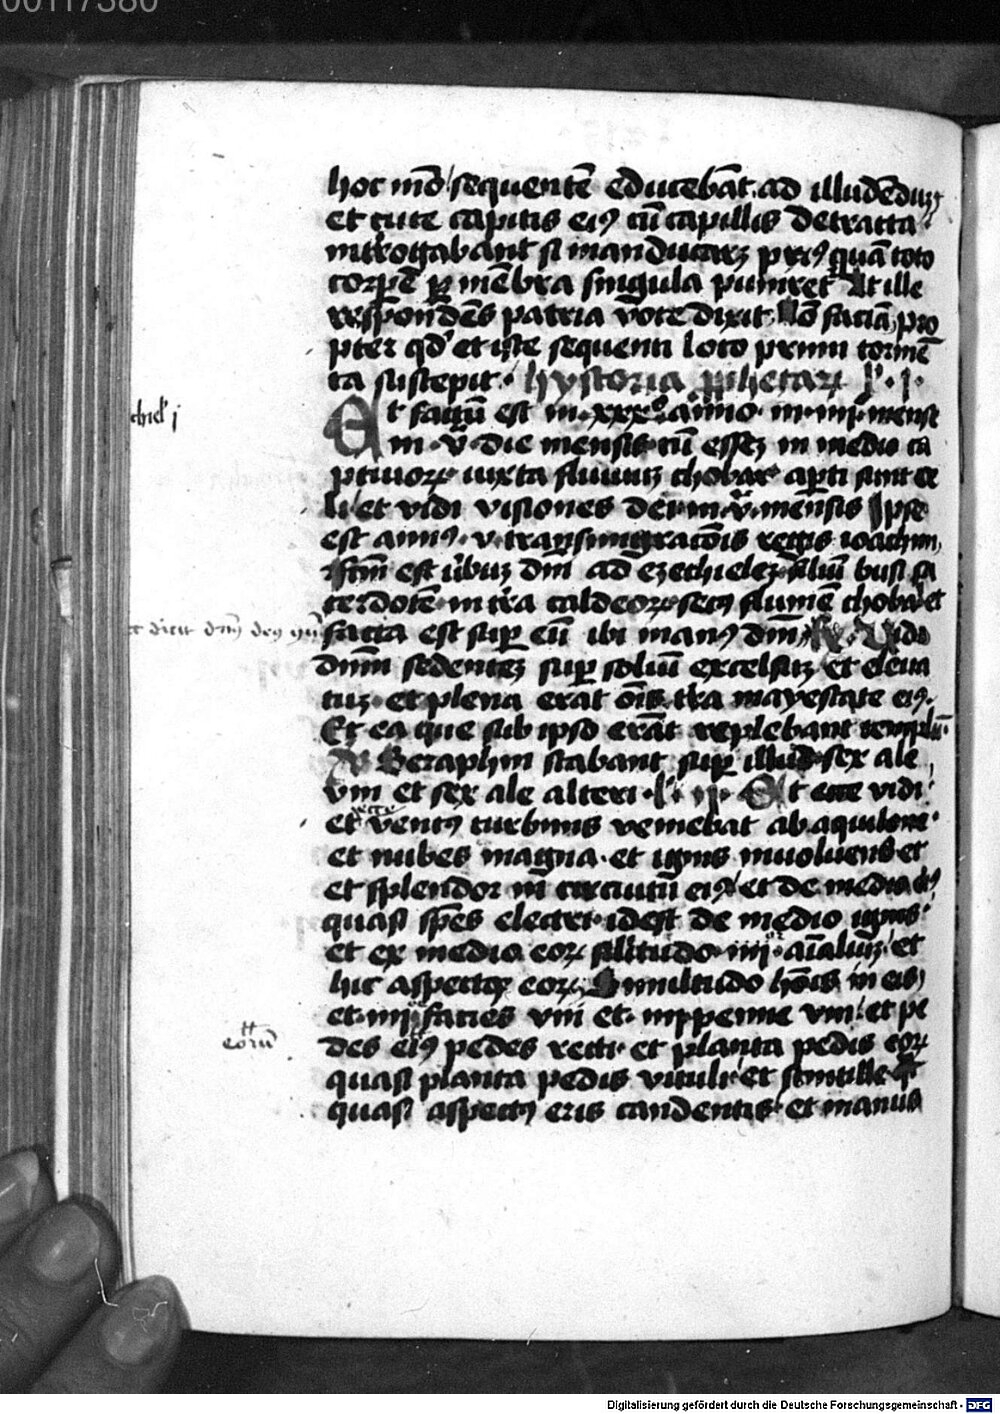 00117380
hoc mō sequentē educebāt ad illudēduʒ
et cute capitis eiꝰ cū capillis detracta
introgabant si manducarꝫ priꝰ quā toto
corpe ꝑ mēbra singula puniret At ille
respondēs patria voce dixit Nō faciā pro
pter qd' et iste sequenti loco primi tormē
ta suscepit · hystoria ꝓphetaꝝ · l' · j ·
Et factū est in · xxxº anno · in · iiij · mense
in · v · die mensis cū essꝫ in medio ca
ptiuoꝝ iuxta fluuiuꝫ chobar aperti sunt ce
li et vidi visiones dei · in · v · mensis Ipse
est annꝰ · v · transmigracōis regis ioachim
factm est v̓buꝫ dm̄ ad ezechieleꝫ filiū busi sa
cerdotē in t̓ra caldeoꝝ secꝰ flumē chobar et
facta est sup eū ibi manꝰ dm̄ · R · Vidi
dnm̄ sedenteꝫ sup soliū excelsuꝫ et eleua
tuꝫ · et plena erat ōis t̓ra mayestate eiꝰ ·
Et ea que sub ipso erāt replebant templū ·
V Seraphin stabant sup illud · sex ale
vni et sex ale alteri · l' · ij · Et ecce vidi
et ecce ventꝰ turbinis veniebat ab aquilone ·
et nubes magna · et ignis inuoluens et
et splendor in circuitū eiꝰ et de medio eiꝰ
quasi spēs electri · idest de medio ignis
et ex medio eoꝝ silitudo · iiij · aīaliuꝫ et
hic aspectꝰ eoꝝ Similitudo hōis in eis
et · iiij facies vni et · iiij penne vni · et pe
des eiꝰ pedes recti · et planta pedis eoꝝ
quasi planta pedis vituli · et scintille
quasi aspectꝰ eris candentis · et manus
chiel' j
dicit dn̄s deꝰ
eorū
Digitalisierung gefördert durch die Deutsche Forschungsgemeinschaft - DFG